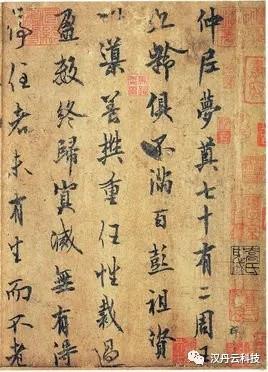 仲尼夢奠七十有二周王
九齡俱不滿百彭祖資
以導養樊重任性裁過
盈數終歸冥滅無有得
停住者未有生而不老
汉丹云科技